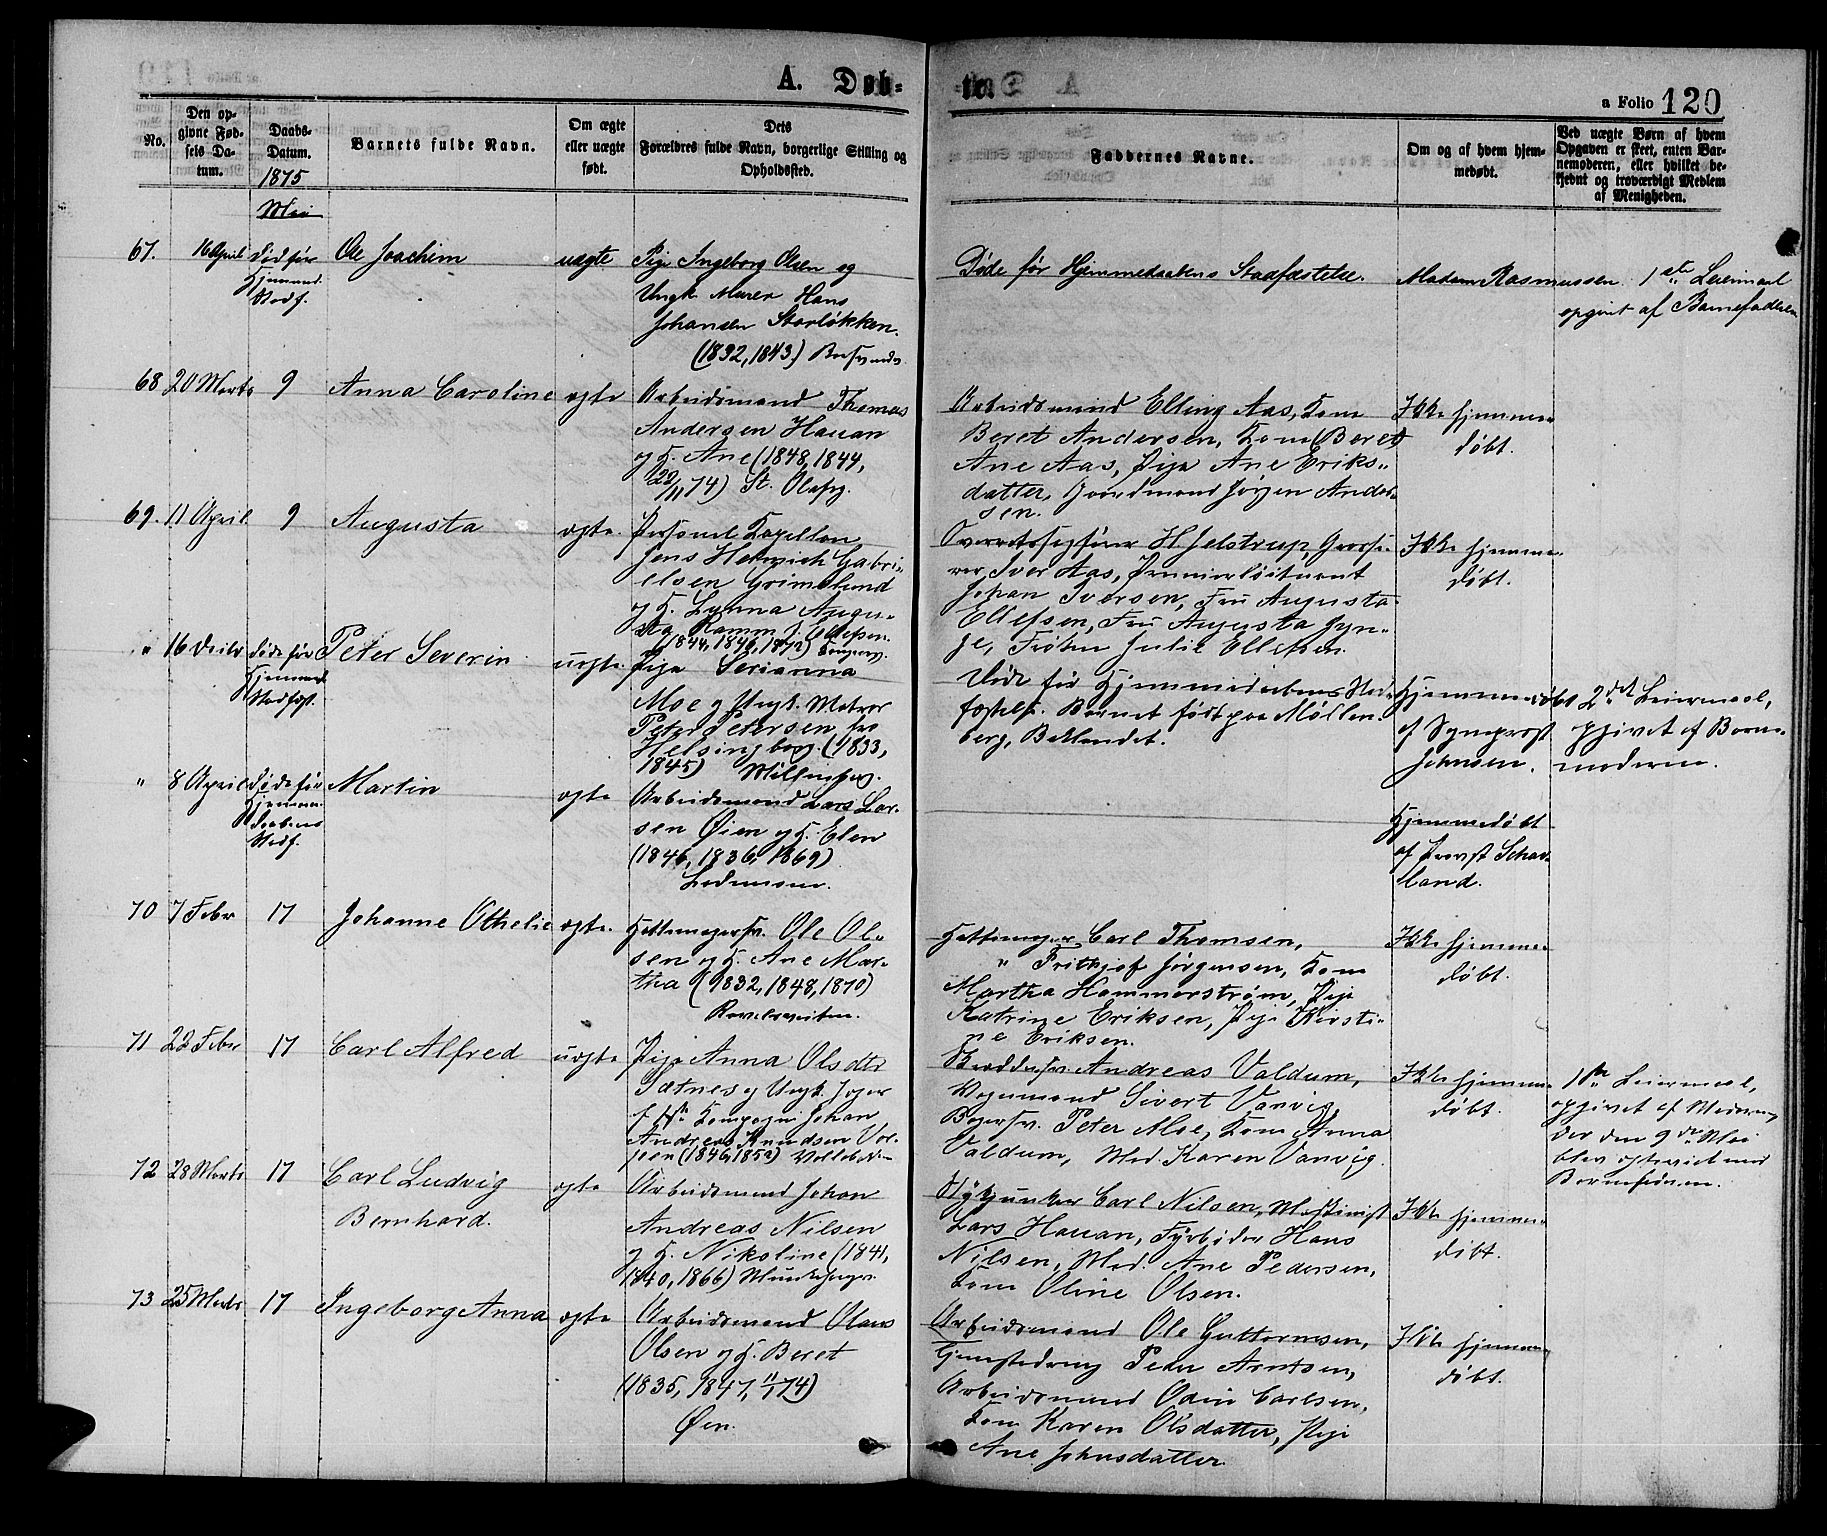 A. Døb-
te.
a Folio 120
No.
Den op-
givne Fød-
sels Da-
tum.
Daabs-
Datum.
1875
Barnets fulde Navn.
Om ægte
eller uægte
født.
Dets
Forældres fulde Navn, borgerlige Stilling og
Opholdssted.
Faddernes Navne.
Om og af hvem hjem-
medøbt.
Ved uægte Børn af hvem
Opgaven er skeet, enten Bar-
nemoderen, eller hvilket be-
kjendt og troværdigt Medlem
af Menigheden.
Mai
67.
16 April
død før
Hjemmed.
Stadf.
Ole Joachim
uægte
Pige Ingeborg Olsen og
Ungk. Murer Hans
Johansen Storløkken.
(1832, 1843)
Døde før Hjemmedaabens Stadfæstelse.
Madam Rasmussen.
1ste Leiermaal
opgivet af Barnefaderen
68
20 Marts
9
Anna Caroline
ægte
Arbeidsmand Thomas
Andersen Hauan
og K. Ane (1848, 1844,
22/11 74) St. Olafsg.
Arbeidsmand Elling Aas, Kone
Beret Andersen, Kone (Beret)
Ane Aas, Pige Ane Eriks-
datter, Gaardmand Jørgen Ander-
sen.
Ikke hjemme-
døbt.
69.
11 April
9
Augusta
ægte.
Personel Kapellan
Jens Henrich Gabri-
elsen Grimelund
og K. Lynna Augu-
sta Ramm f. Ellefsen
(1844, 1846, 1872)
Overretssagfører H. Jelstrup, Grosse-
rer Iver Aas, Premierløitnant
Johan Iversen, Fru Augusta
Ellefsen, Fru Augusta Jyn-
ge, Frøken Julie Ellefsen.
Ikke hjemme-
døbt.
"
16
døde før
Hjemmed.
Stadfæst.
Peter Severin
uægte.
Pige Serianna
Moe og Ungk. Matros
Peter Petersen, fra
Helsingborg. (1833,
1845) Møllenberg.
Døde før Hjemmedaabens Stad-
fæstelse. Barnet født paa Møllen-
berg, Baklandet.
Hjemmedøbt
af Sognprest
Johnsen.
2det Leiermaal,
opgivet af Barne-
moderen.
"
8 April
døde før
Hjemme-
daabens
Stadf.
Martin
ægte
Arbeidsmand Lars Lar-
sen Øien og K. Elen
(1846, 1836, 1869)
Lademoen.
Hjemmedøbt
af Provst Schav-
land.
70
7 Febr
17
Johanne Othelie
ægte.
Hattemagersv. Ole Ol-
sen og K. Ane Mar-
tha (1832, 1848, 1870)
Ravelsveiten.
Hattemager Carl Thomsen,
" Frithjof Jørgensen, Kone
Martha Hammerstrøm, Pige
Katrine Eriksen, Pige Kirsti-
ne Eriksen.
Ikke hjemme-
døbt.
71
22 Febr
17
Carl Alfred
uægte
Pige Anna Olsdtr
Sætnes og Ungk. Jæger
Kompagni Johan
Andreas Knudsen Vol-
(1846, 1852)
Andreas Valdum,
Vognmand Sivert Vanvig,
Bagersv. Peter Moe, Kone Anna
Valdum, Mad. Karen Vanvig.
Ikke hjemme-
døbt.
1ste Leiermaal,
opgivet af Moderen,
der den 9de Mai
blev ægteviet med
Barnefaderen.
72
28 Marts
17
Carl Ludvig
Bernhard.
ægte
Arbeidsmand Johan
Andreas Nilsen
og K. Nikoline (1841,
1840, 1866)
Carl Nilsen, Maskinist
Lars Hauan, Fyrbøder Hans
Nilsen, Mad. Ane Pedersen,
Kone Oline Olsen.
Ikke hjemme-
døbt.
73
25 Marts
17
Ingeborg Anna
ægte
Arbeidsmand Olaus
Olsen og K. Beret
(1835, 1847, 11/1 74)
Øen.
Arbeidsmand Ole Guttormsen,
Peter Arntsen,
Arbeidsmand Odin Carlsen,
Kone Karen Olsdatter, Pige
Ane Johnsdatter.
Ikke hjemme-
døbt.